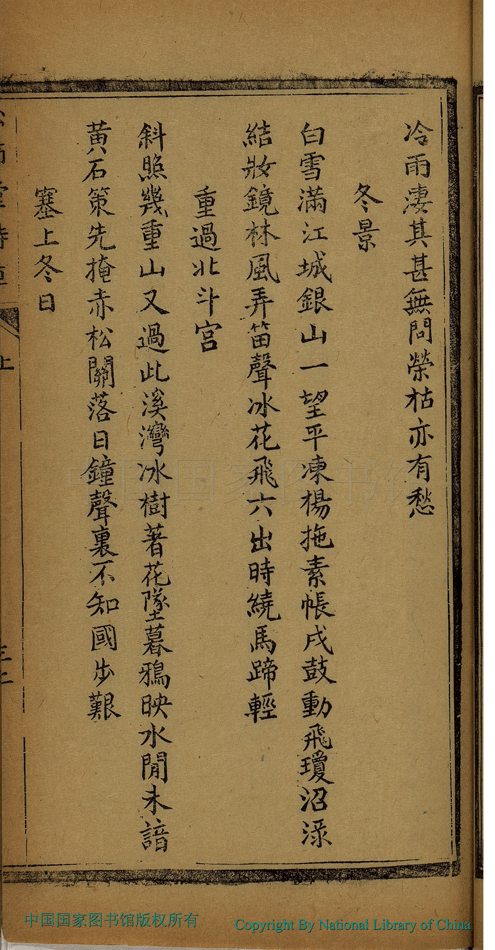 冷雨凄其甚無問榮枯亦有愁
冬景
白雪滿江城銀山一望平凍楊拖素帳戍鼓動飛瓊沼渌
結妝鏡林風弄笛聲冰花飛六出時繞馬蹄輕
重過北斗宮
斜照幾重山又過此溪灣冰樹著花墜暮鴉映水閒未諳
黃石策先掩赤松關落日鐘聲裏不知國步艱
塞上冬日
上
中国国家图书馆版权所有
Copyright By National Library of China